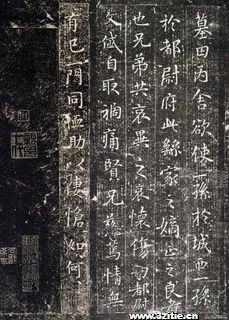 墓田丙舍欲使一孫於城西一孫
於都尉府此繇家之嫡正之良者
也兄弟共哀異之哀懷傷切都尉
文岱自取禍痛賢兄慈篤情無
有已一門同恤助以悽愴如何
www.3zitie.cn